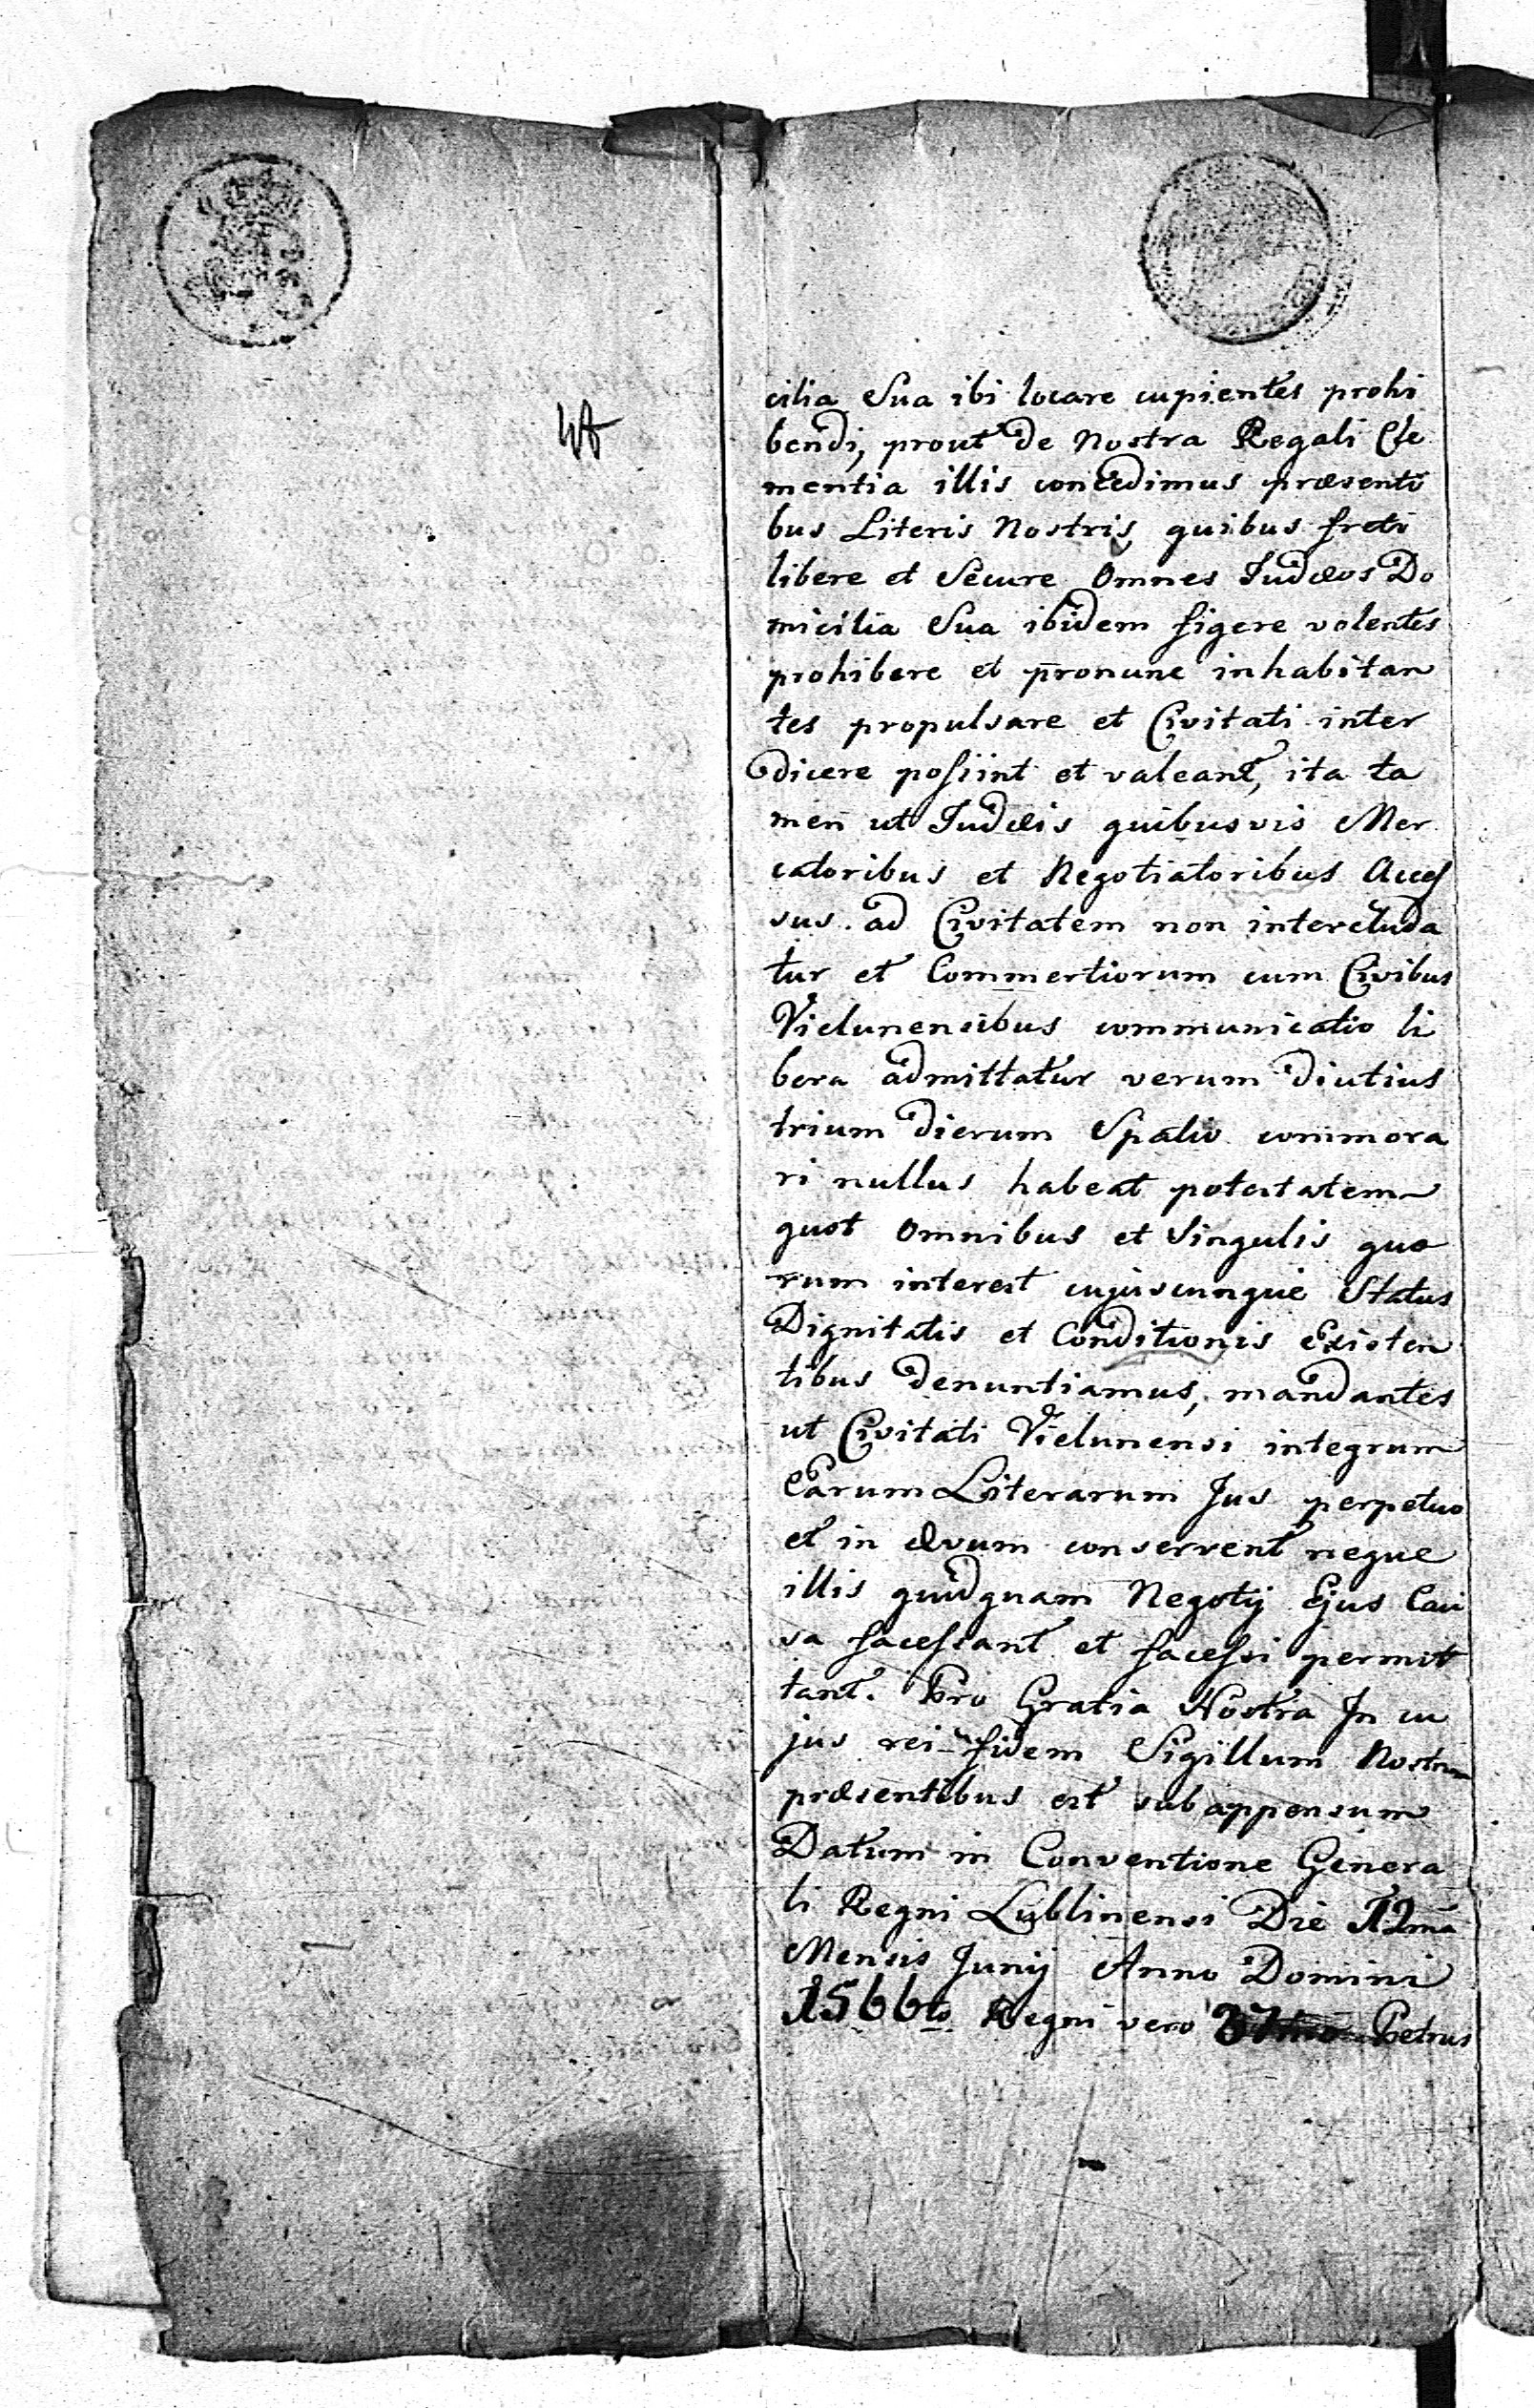 cilia Sua ibi locare cupientes prohi
bendi, prout de Nostra Regali Cle
mentia illis concedimus præsenti
bus Literis Nostris, quibus freti
libere et Secure Omnes Judæos Do
micilia Sua ibidem figere volentes
prohibere et pronunc inhabitan
tes propulsare et Civitati inter
dicere possint et valeant, ita ta
men ut Judæis quibusvis Mer
catoribus et Negotiatoribus Acces
sus ad Civitatem non interclúda
tur et Commertiorum cum Civibus
Vielunensibus communicatio li
bera admittatur verum diutius
trium dierum Spatio commora
ri nullus habeat potestatem
quot Omnibus et Singulis quo
rum interest cujuscunque Status
Dignitatis et Conditionis Existen
tibus denuntiamus, mandantes
ut Civitati Vielunensi integrum
Earum Literarum Jus perpetuo
et in ævum conservent neque
illis quidquam Negotij Ejus Cau
sa facessant et facessi permit
tant. Pro Gratia Nostra In cu
jus rei fidem Sigillum Nostrum
præsentibus est subappensum
Datum in Conventione Genera
li Regni Lublinensi Die 12ma
Mensis Junij Anno Domini
1566to Regni vero 37mo Petrus